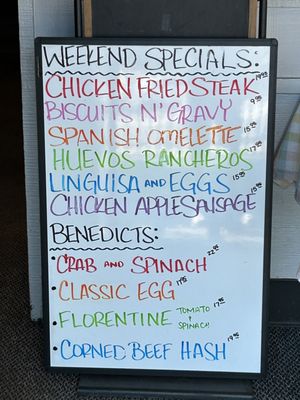 WEEKEND SPECIALS:
CHICKEN FRIED STEAK 19.95
BISCUITS N' GRAVY 9.95
SPANISH OMELETTE 15.95
HUEVOS RANCHEROS 17.95
LINGUISA AND EGGS 15.95
CHICKEN APPLE SAUSAGE 15.95
BENEDICTS:
• CRAB AND SPINACH 22.95
• CLASSIC EGG 17.95
• FLORENTINE TOMATO + SPINACH 17.95
• CORNED BEEF HASH 19.95